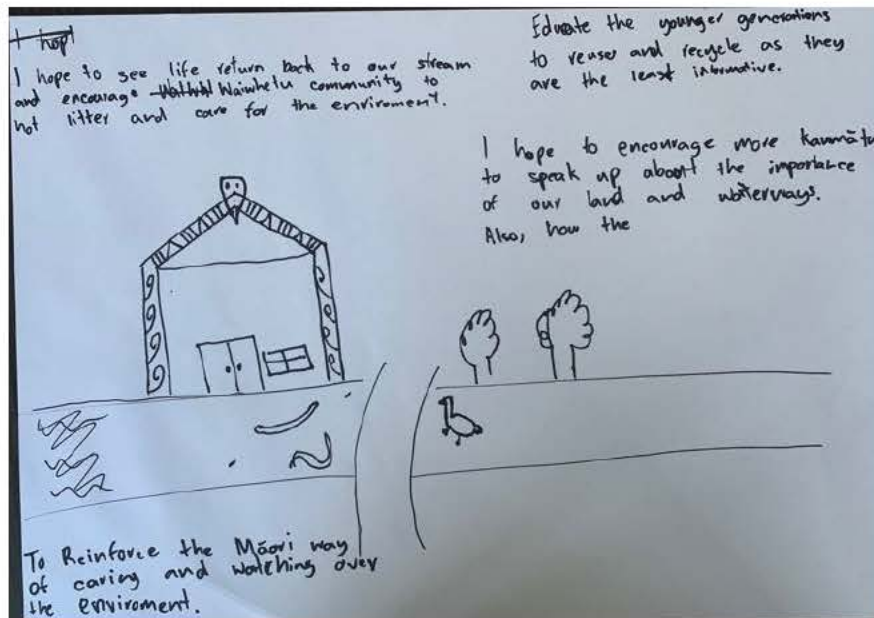 I hop
I hope to see life return back to our stream
and encourage Waiwhetu community to
not litter and care for the enviroment.
Educate the younger generations
to reuse and recycle as they
are the least informative.
I hope to encourage more kaumātu
to speak up about the importance
of our land and waterways.
Also, how the
To Reinforce the Māori way
of caring and watching over
the enviroment.